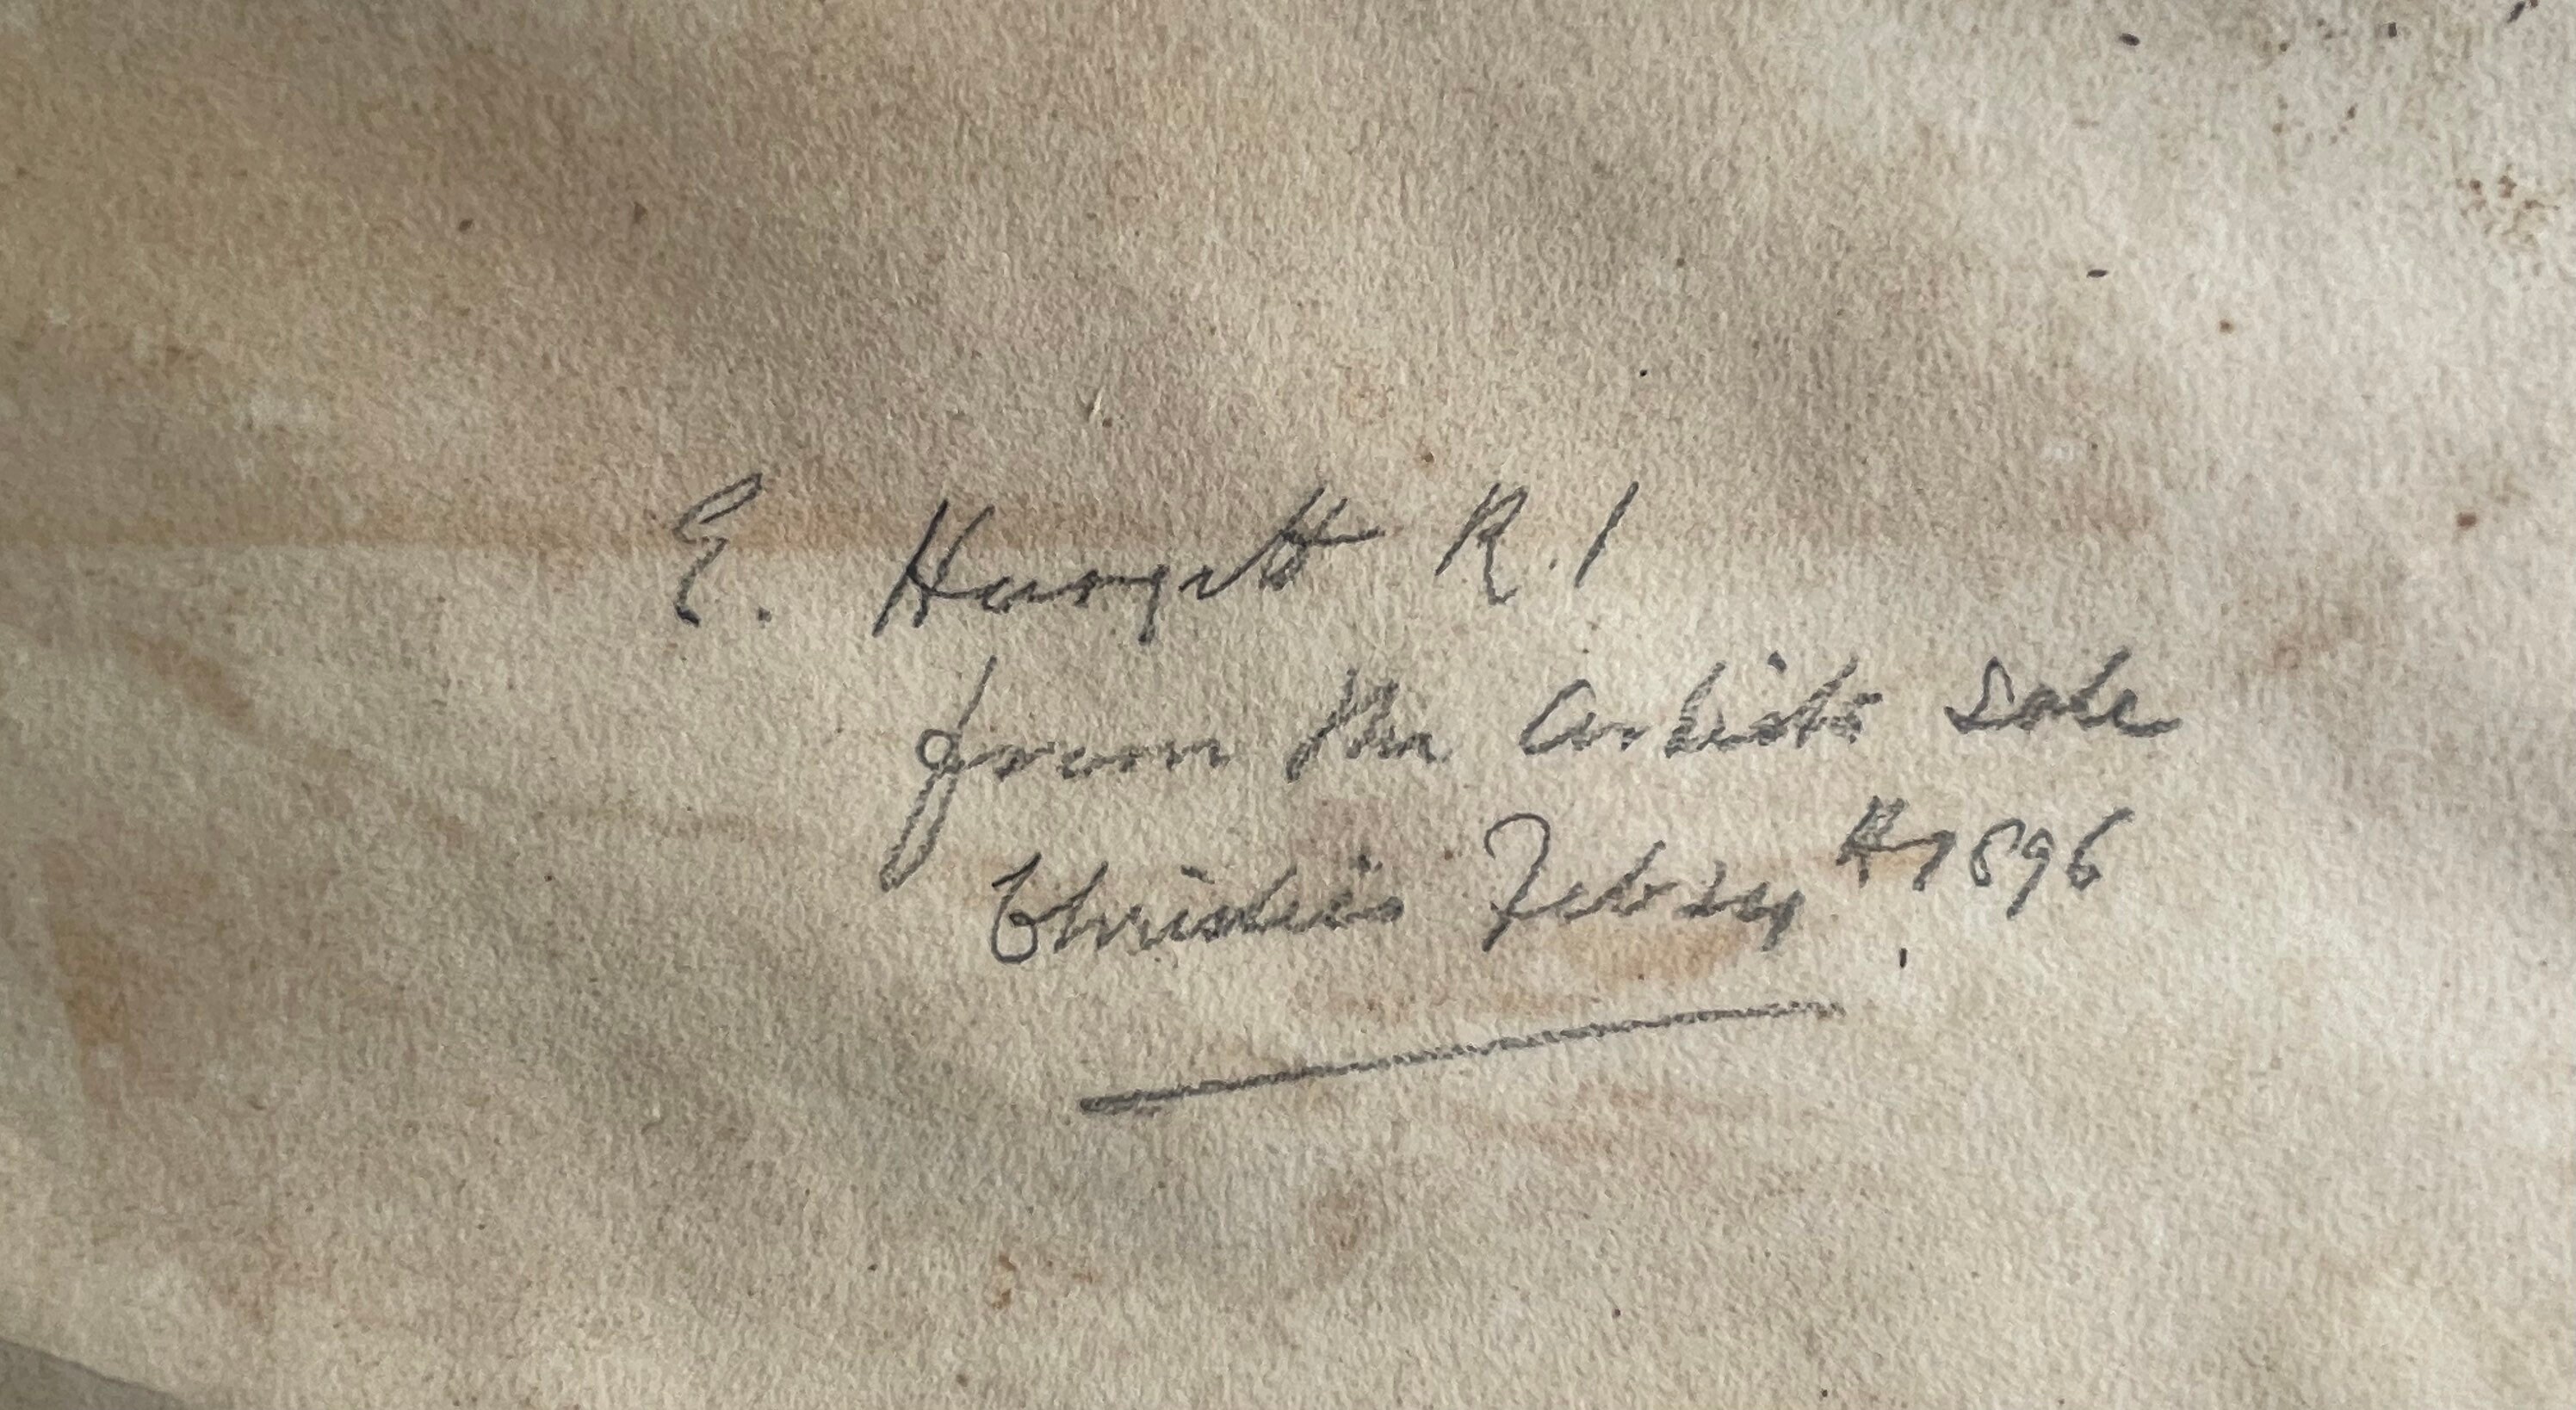 E. Hargitt R.I
from the Artists Sale
Christie's Feb 24th 1896